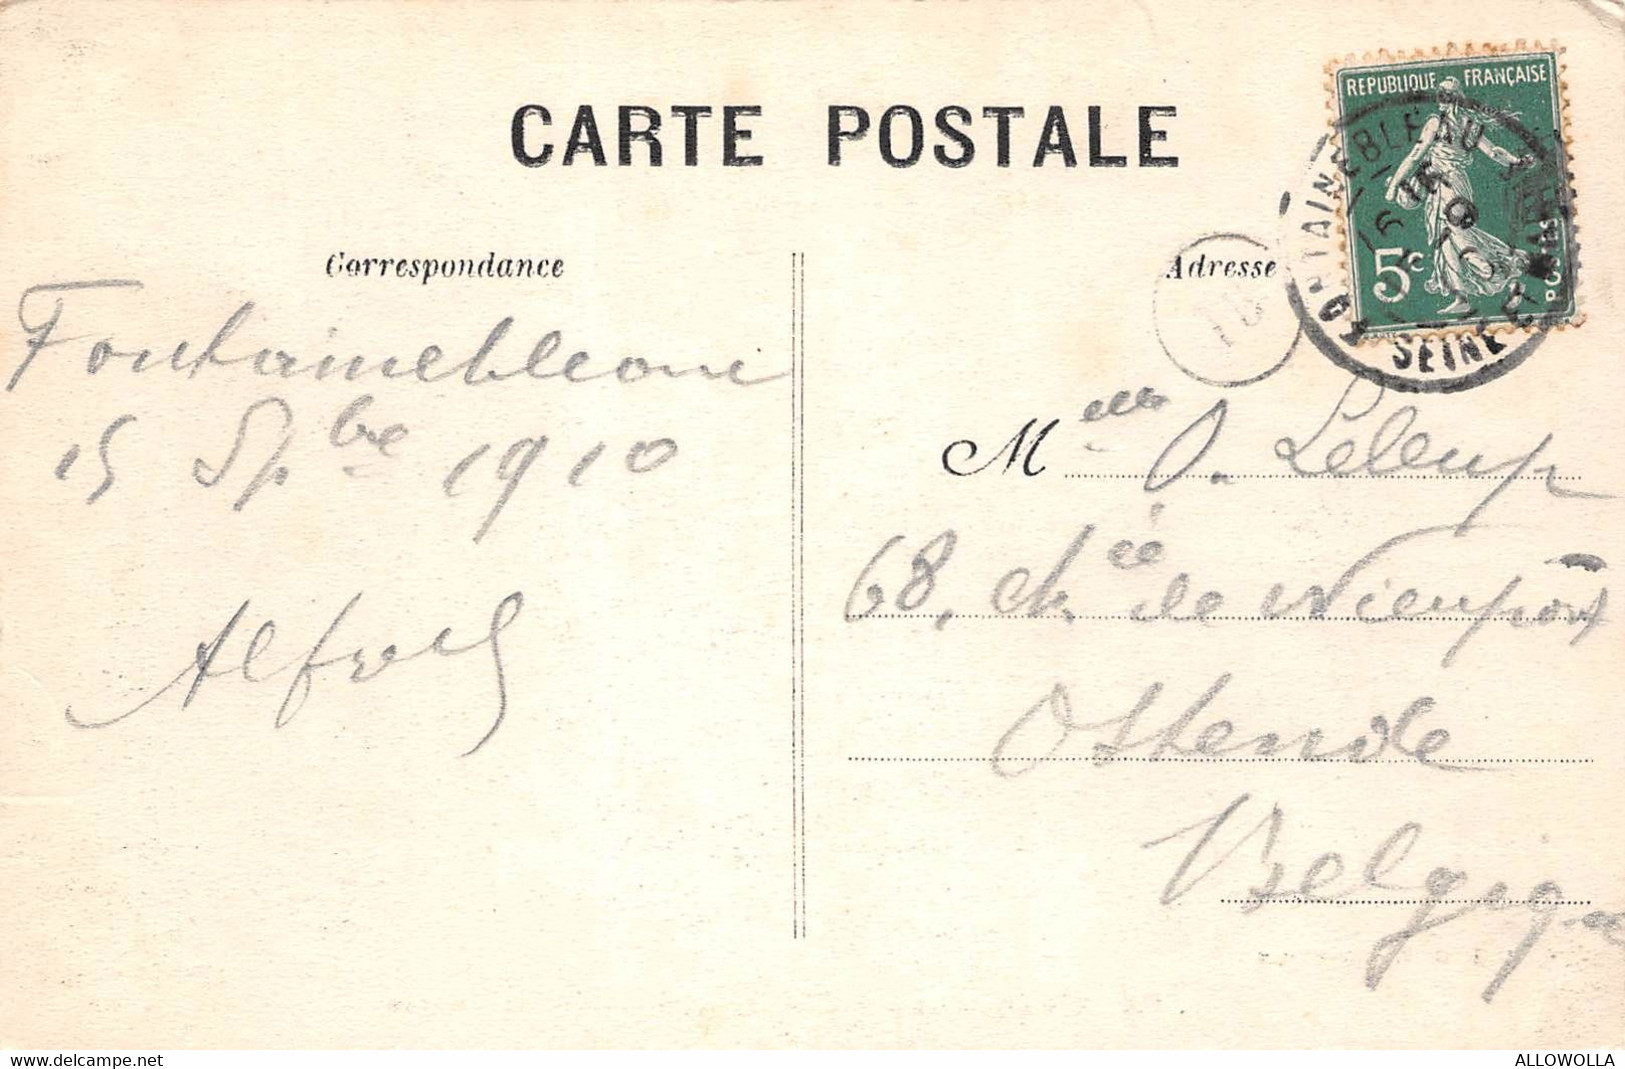 CARTE POSTALE
Correspondance
Fontainebleau
15 Spbre 1910
Alfred
Adresse
REPUBLIQUE FRANÇAISE
5c
POSTES
FONTAINEBLEAU
SEINE ET MARNE
Melle O. Leleup
68, ch.ée de Nieuport
Ostende
Belgique
www.delcampe.net
ALLOWOLLA